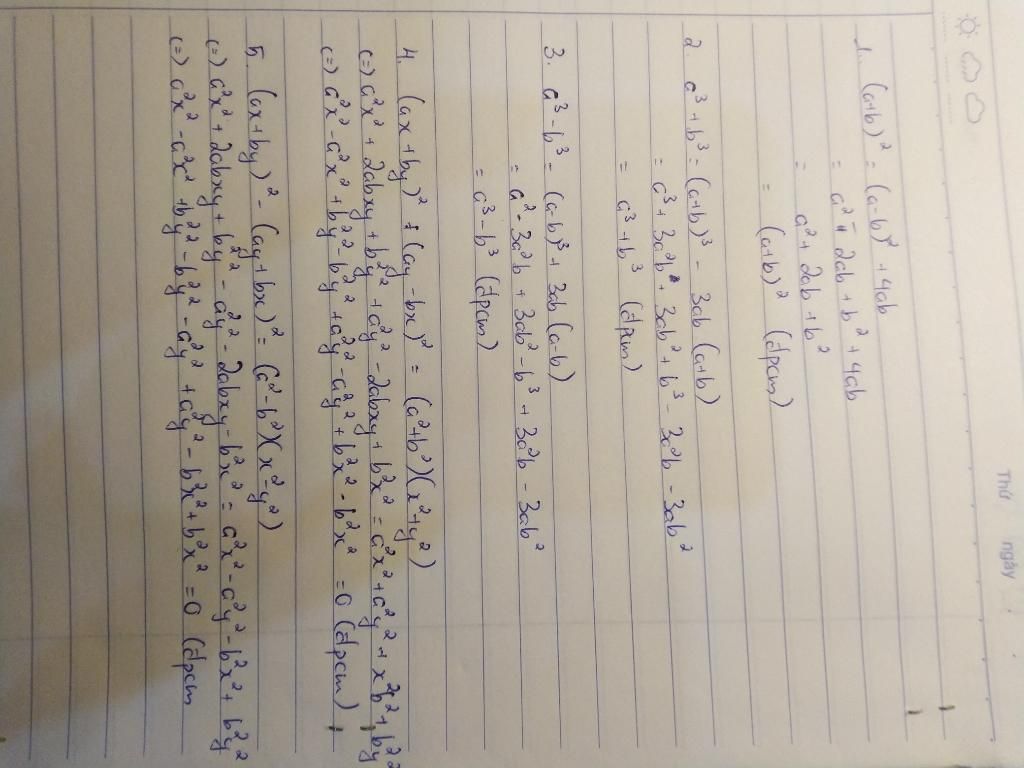 Thứ ngày
1. (a+b)² = (a-b)² + 4ab
= a² - 2ab + b² + 4ab
= a² + 2ab + b²
= (a+b)² (đpcm)
2. a³ + b³ = (a+b)³ - 3ab (a+b)
= a³ + 3a²b + 3ab² + b³ - 3a²b - 3ab²
= a³ + b³ (đpcm)
3. a³ - b³ = (a-b)³ + 3ab (a-b)
= a² - 3a²b + 3ab² - b³ + 3a²b - 3ab²
= a³ - b³ (đpcm)
4. (ax + by)² + (ay - bx)² = (a² + b²)(x² + y²)
(=) a²x² + 2abxy + b²y² + a²y² - 2abxy + b²x² = a²x² + a²y² + x²b² + b²y²
(=) a²x² - a²x² + b²y² - b²y² + a²y² - a²y² + b²x² - b²x² = 0 (đpcm)
5. (ax + by)² - (ay + bx)² = (a² - b²)(x² - y²)
(=) a²x² + 2abxy + b²y² - a²y² - 2abxy - b²x² = a²x² - a²y² - b²x² + b²y²
(=) a²x² - a²x² + b²y² - b²y² - a²y² + a²y² - b²x² + b²x² = 0 (đpcm